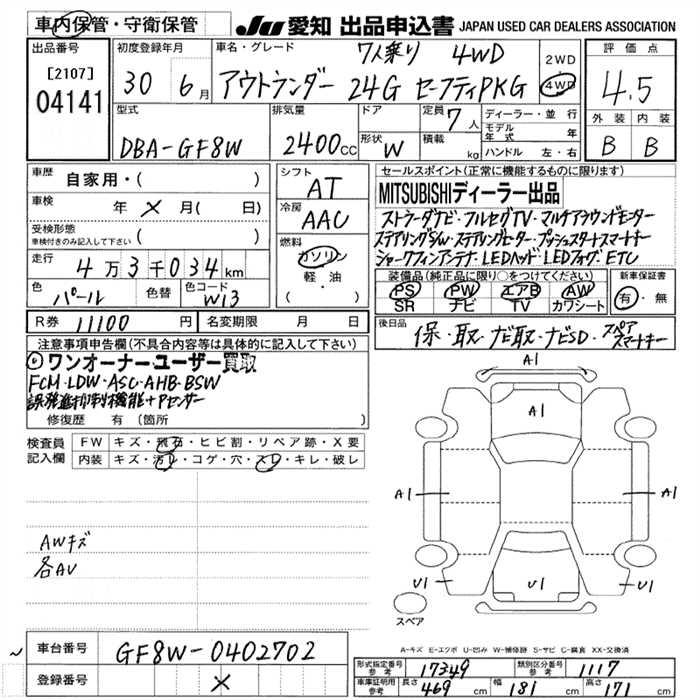 車内保管・守衛保管
JU 愛知 出品申込書 JAPAN USED CAR DEALERS ASSOCIATION
出品番号
[2107]
04141
初度登録年月
30 6月
車名・グレード
7人乗り 4WD
アウトランダー 24G セーフティPKG
2WD
4WD
評価点
4.5
外装 内装
B B
型式
DBA-GF8W
排気量
2400cc
ドア
形状 W
定員 7人
積載 kg
ディーラー・並行
モデル年式 年
ハンドル 左・右
車歴 自家用・( )
車検 年 × 月( 日)
受検形態
車検付きのみ記入して下さい ( )
走行 4万3千034km
色 パール 色替 色コード W13
シフト AT
冷房 AAC
燃料 ガソリン・軽油
( )
セールスポイント(正常に機能するものに限ります)
MITSUBISHIディーラー出品
ストラーダナビ・フルセグTV・マルチアラウンドモニター
ステアリングSW・ステアリングヒーター・プッシュスタートスマートキー
シャークフィンアンテナ・LEDヘッド・LEDフォグ・ETC
装備品(純正品に限り○をつけてください)
PS PW エアB AW
SR ナビ TV カワシート
新車保証書
有・無
R券 11100円 名変期限 月 日
後日品
保・取・ナビ取・ナビSD・スペアスマートキー
注意事項申告欄(不具合内容等は具体的に記入して下さい)
ワンオーナー・ユーザー買取
FCM・LDW・ASC・AHB・BSW
誤発進抑制機能+Pセンサー
修復歴 有(箇所 )
検査員記入欄
FW キズ・飛石・ヒビ割・リペア跡・X要
内装 キズ・汚れ・コゲ・穴・スレ・キレ・破レ
AWキズ
各AU
A1
A1
A1 A1
U1 U1 U1
スペア
A-キズ E-エクボ U-凹み W-補修跡 S-サビ C-腐食 XX-交換済
~
車台番号 GF8W-0402702
登録番号 ×
形式指定番号 参考 17349 類別区分番号 参考 1117
車庫証明用 参考 長さ 469cm 幅 181cm 高さ 171cm